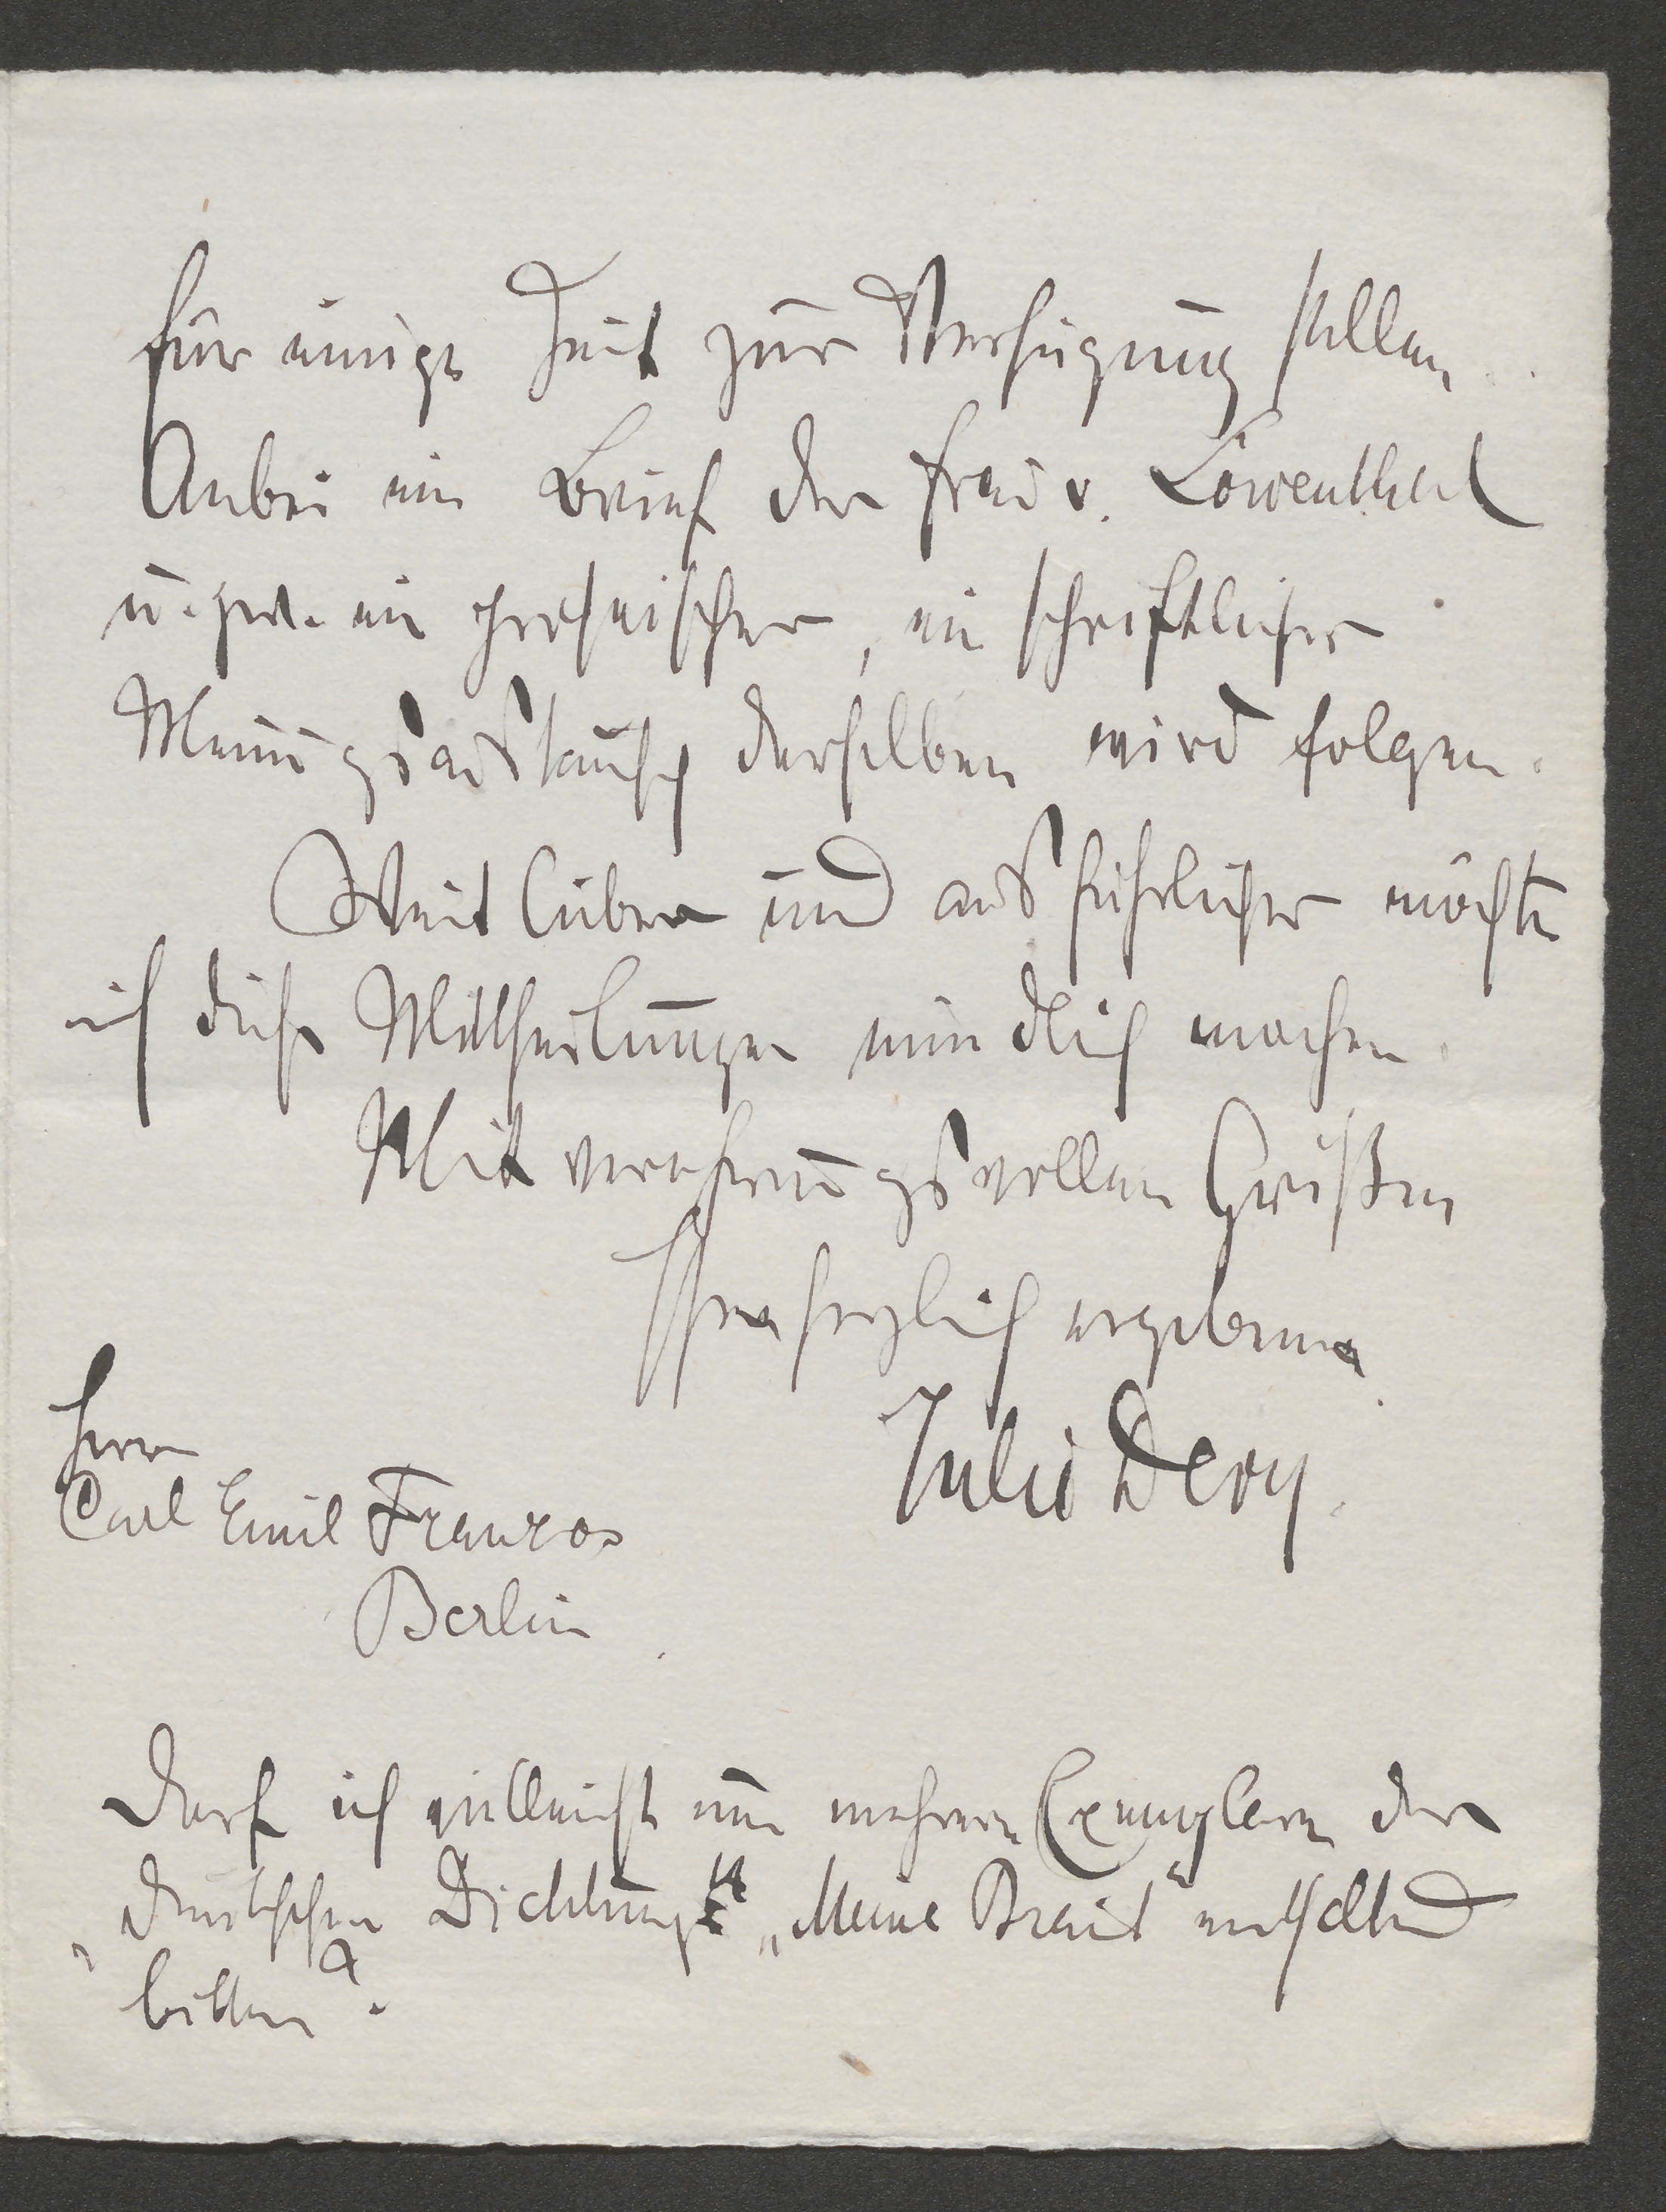 für einige Zeit zur Verfügung stellen.
Anbei ein Brief der Frau v. Löwenthal
u. zw. ein prosaischer, ein schriftlicher
Meinungsaustausch derselben wird folgen.
Weit lieber und ausführlicher möchte
ich diese Mittheilungen mündlich machen.
Mit verehrungsvollen Grüßen
Ihre herzlich ergebene
Julie Dery.
Herrn
Carl Emil Franzos
Berlin
Darf ich vielleicht um mehrere Exemplare der
„deutschen Dichtung“ „Meine Braut“ enthaltend
bitten?